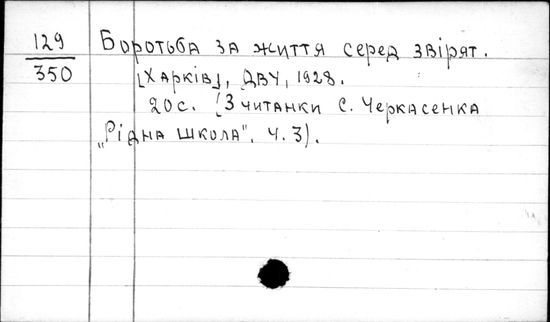 129
350
Боротьба за життя серед звірят.
[Харків], ДВУ, 1928.
20 с. (З читанки С. Черкасенка
„Рідна школа". Ч. 3).